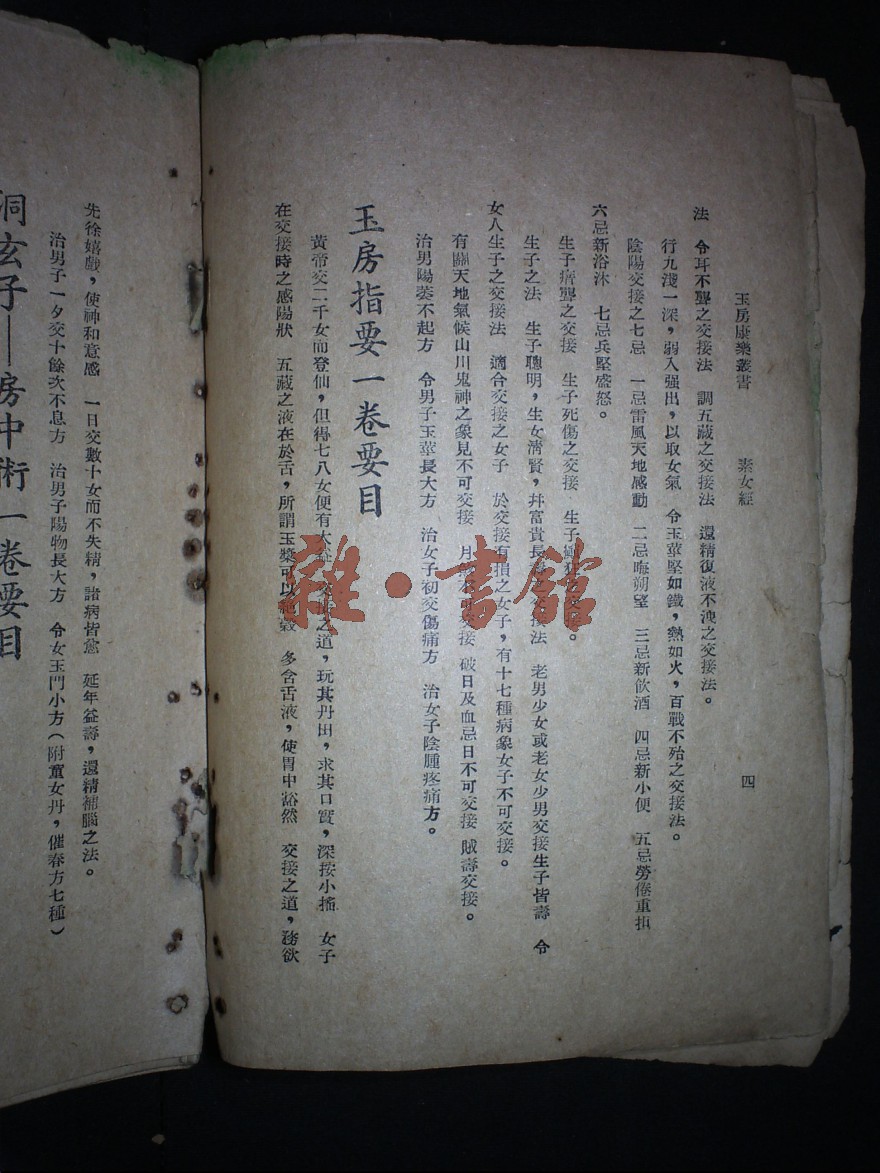 玉房康樂叢書　素女經　四
法　令耳不聾之交接法　調五藏之交接法　還精復液不洩之交接法。
行九淺一深，弱入强出，以取女氣　令玉莖堅如鐵，熱如火，百戰不殆之交接法。
陰陽交接之七忌　一忌雷風天地感動　二忌晦朔望　三忌新飲酒　四忌新小便　五忌勞倦重担
六忌新浴沐　七忌兵堅盛怒。
生子瘖聾之交接　生子死傷之交接　生子
生子之法　生子聰明，生女淸賢，幷富貴長　交接法　老男少女或老女少男交接生子皆壽　令
女人生子之交接法　適合交接之女子　於交接有損之女子，有十七種病象女子不可交接。
有關天地氣候山川鬼神之象見不可交接　月　不可交接　破日及血忌日不可交接　賊壽交接。
治男陽萎不起方　令男子玉莖長大方　治女子初交傷痛方　治女子陰腫疼痛方。
玉房指要一卷要目
黃帝交二千女而登仙，但得七八女便有大　交接之道，玩其丹田，求其口實，深按小搖　女子
在交接時之感陽狀　五藏之液在於舌，所謂玉漿可以絕穀　多含舌液，使胃中豁然　交接之道，務欲
先徐嬉戲，使神和意感　一日交數十女而不失精，諸病皆愈　延年益壽，還精補腦之法。
治男子一夕交十餘次不息方　治男子陽物長大方　令女玉門小方（附童女丹，催春方七種）
洞玄子—房中術一卷要目
雜·書館